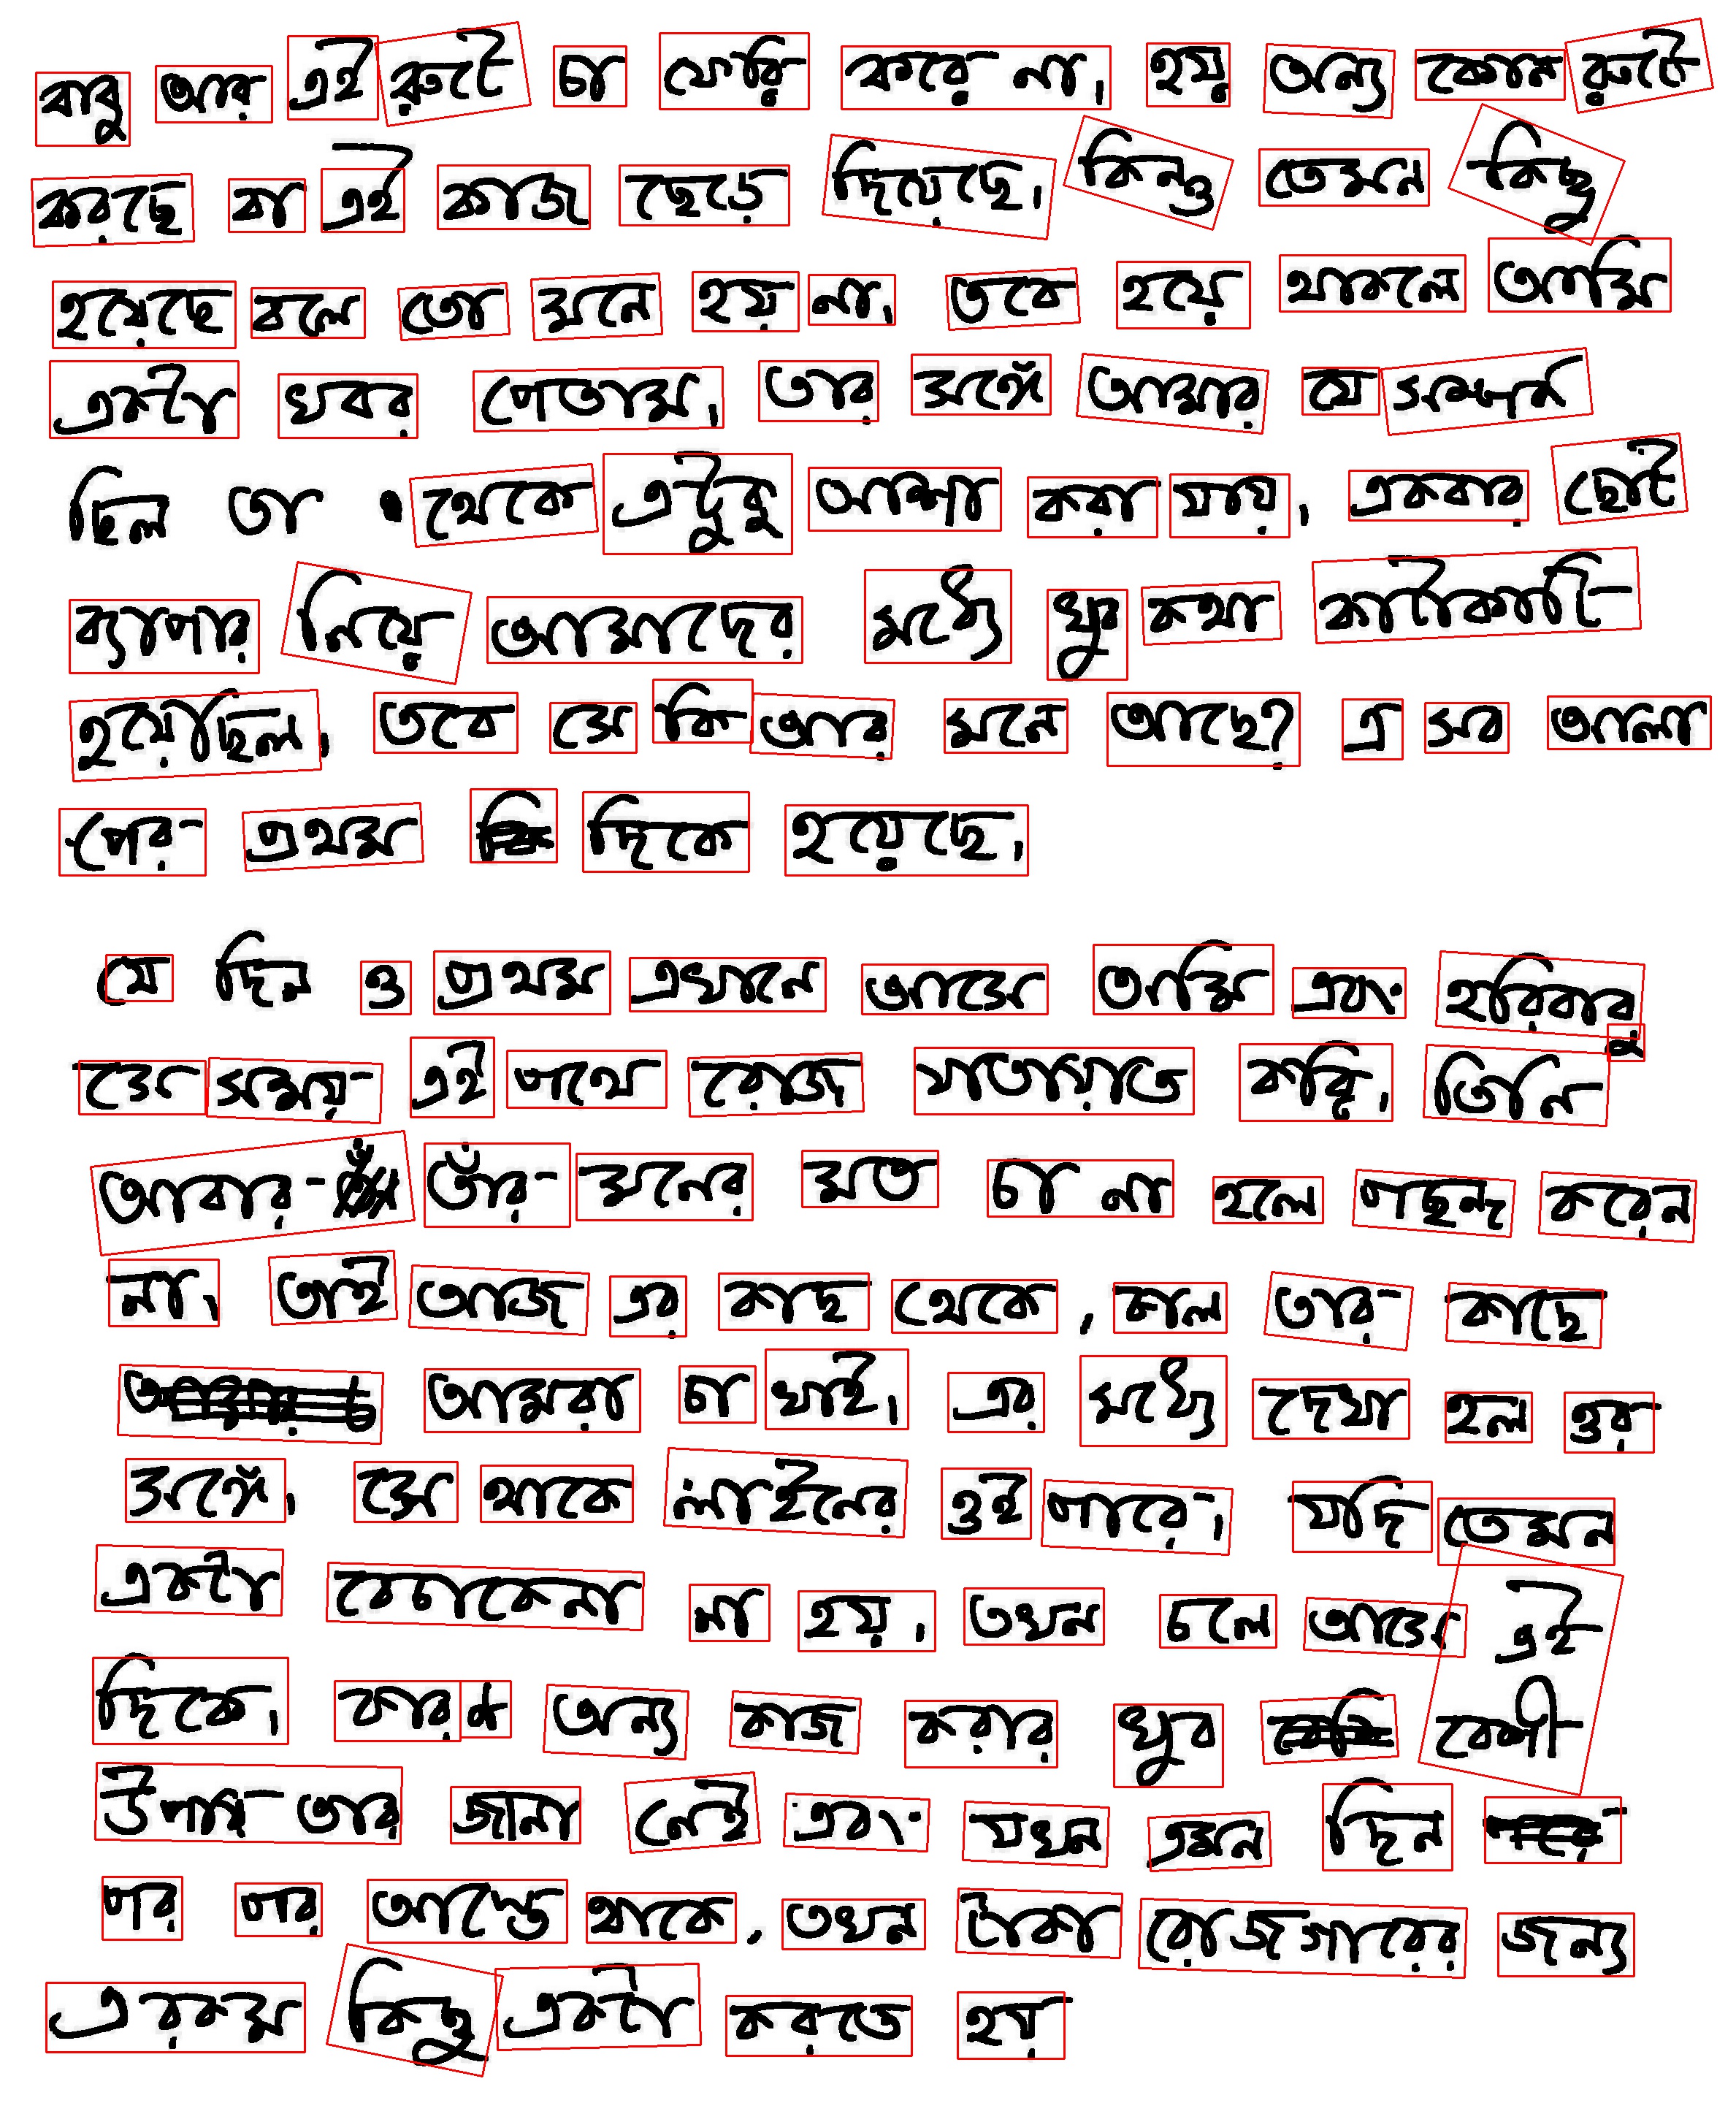 বাবু আর এই রুটে চা ফেরি করে না। হয় অন্য কোন রুটে
করছে বা এই কাজ ছেড়ে দিয়েছে। কিন্তু তেমন কিছু
হয়েছে বলে তো মনে হয় না। তবে হয়ে থাকলে আমি
একটা খবর পেতাম। তার সঙ্গে আমার যে সম্পর্ক
ছিল তা থেকে এটুকু আশা করা যায়। একবার ছোট
ব্যাপার নিয়ে আমাদের মধ্যে খুব কথা কাটাকাটি
হয়েছিল। তবে সে কি আর মনে আছে? এ সব আলা
পের প্রথম দিকে হয়েছে।
যে দিন ও প্রথম এখানে আসে আমি এবং হরিবাবু
সে সময় এই পথে রোজ যাতায়াত করি। তিনি
আবার তাঁর মনের মত চা না হলে পছন্দ করেন
না। তাই আজ এর কাছ থেকে, কাল তার কাছে
আমরা চা খাই। এর মধ্যে দেখা হল ওর
সঙ্গে। সে থাকে লাইনের ওই পারে। যদি তেমন
একটা বেচাকেনা না হয়। তখন চলে আসে এই
দিকে। কারণ অন্য কাজ করার খুব বেশী
উপায় তার জানা নেই এবং যখন এমন দিন
পর পর আসতে থাকে, তখন টাকা রোজগারের জন্য
এরকম কিছু একটা করতে হয়